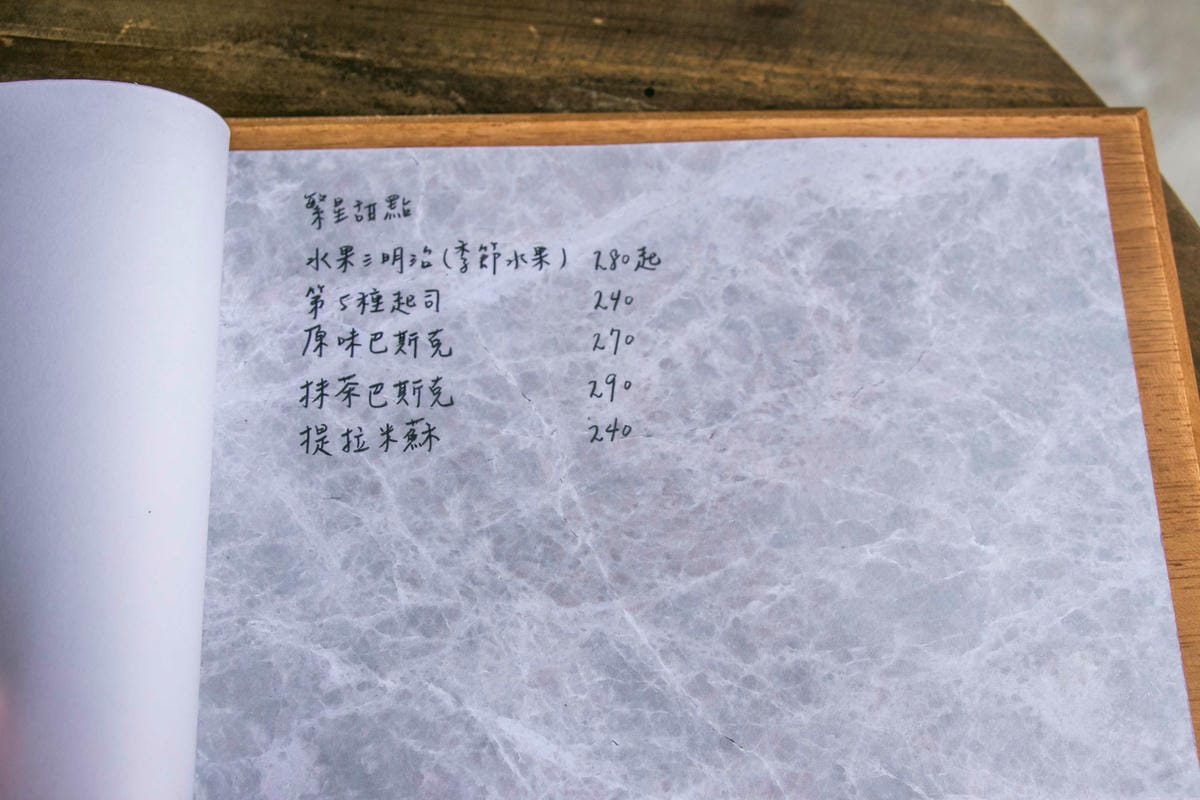 繁星甜點
水果三明治(季節水果) 280起
第5種起司 240
原味巴斯克 270
抹茶巴斯克 290
提拉米蘇 240